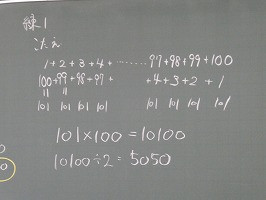 練1
1+2+3+4+ ‥‥‥‥ 97+98+99+100
100+99+98+97+ +4+3+2+1
|| ||
101 101 101 101 101 101 101 101
101×100=10100
10100÷2=5050
0